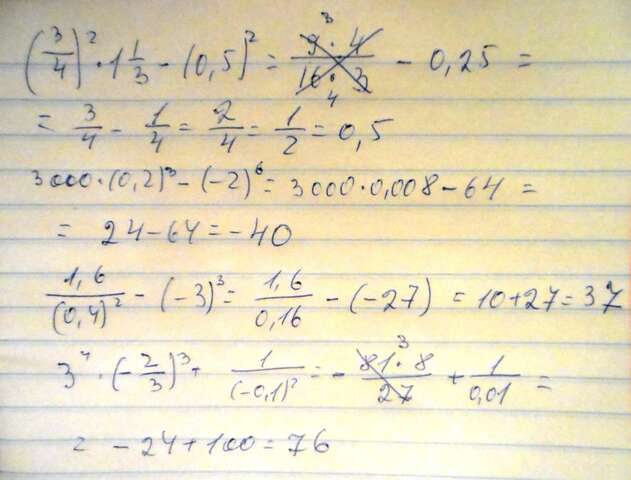 (3/4)² · 1 1/3 − (0,5)² = 9 · 4 / 16 · 3 − 0,25 =
= 3/4 − 1/4 = 2/4 = 1/2 = 0,5
3000 · (0,2)³ − (−2)⁶ = 3000 · 0,008 − 64 =
= 24 − 64 = −40
1,6 / (0,4)² − (−3)³ = 1,6 / 0,16 − (−27) = 10 + 27 = 37
3⁴ · (−2/3)³ + 1 / (−0,1)² = − 81 · 8 / 27 + 1 / 0,01 =
= −24 + 100 = 76